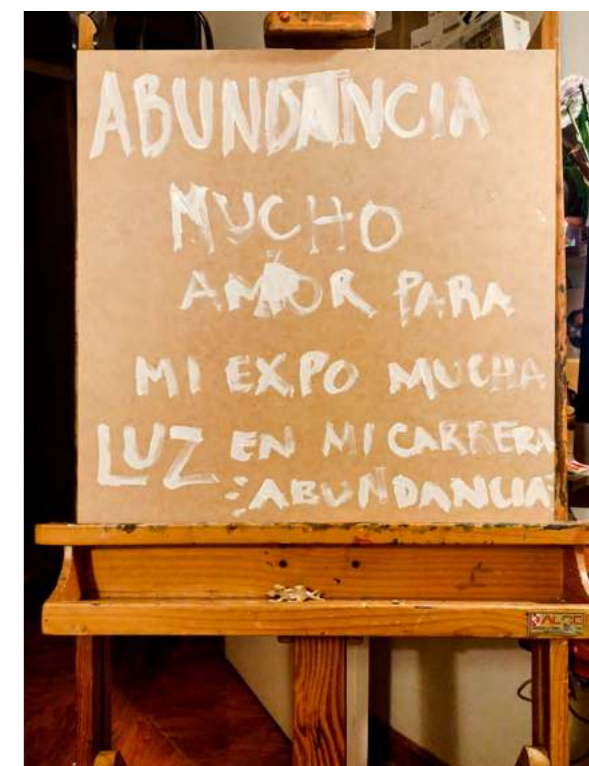 ABUNDANCIA
MUCHO
AMOR PARA
MI EXPO MUCHA
LUZ EN MI CARRERA
:ABUNDANCIA
ALCE